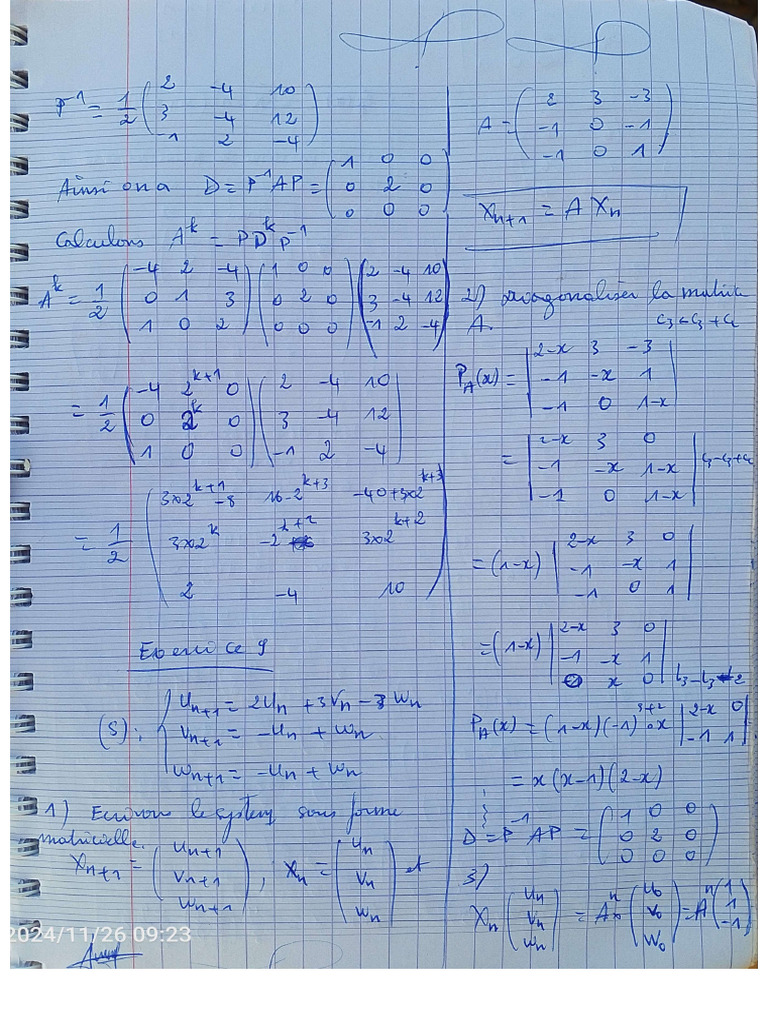 P⁻¹ = 1/2 ( 2 -4 10
3 -4 12
-1 2 -4 )
Ainsi on a D = P⁻¹AP = ( 1 0 0
0 2 0
0 0 0 )
Calculons A^k = P D^k P⁻¹
A^k = 1/2 ( -4 2 -4
0 1 3
1 0 2 ) ( 1 0 0
0 2 0
0 0 0 ) ( 2 -4 10
3 -4 12
-1 2 -4 )
= 1/2 ( -4 2^(k+1) 0
0 2^k 0
1 0 0 ) ( 2 -4 10
3 -4 12
-1 2 -4 )
= 1/2 ( 3×2^(k+1) -8 16-2^(k+3) -40+3×2^(k+3)
3×2^k -2^(k+2) 3×2^(k+2)
2 -4 10 )
Exercice 9
(S): { U_(n+1) = 2U_n + 3V_n - 3W_n
V_(n+1) = -U_n + W_n
W_(n+1) = -U_n + W_n
1) Ecrivons le system sous forme
matricielle.
X_(n+1) = ( U_(n+1)
V_(n+1)
W_(n+1) ), X_n = ( U_n
V_n
W_n ) et
2024/11/26 09:23
A = ( 2 3 -3
-1 0 -1
-1 0 1 )
X_(n+1) = A X_n
2) Diagonaliser la matrice
A. C3 ← C3 + C2
P_A(x) = | 2-x 3 -3
-1 -x 1
-1 0 1-x |
= | 2-x 3 0
-1 -x 1-x
-1 0 1-x | C3-C3+C2
= (1-x) | 2-x 3 0
-1 -x 1
-1 0 1 |
= (1-x) | 2-x 3 0
-1 -x 1
0 x 0 | L3-L3-L2
P_A(x) = (1-x)(-1)^(3+2) · x | 2-x 0
-1 1 |
= x(x-1)(2-x)
D = P⁻¹AP = ( 1 0 0
0 2 0
0 0 0 )
3)
X_n ( U_n
V_n
W_n ) = A^n ( U_0
V_0
W_0 ) = A^n ( 1
1
-1 )